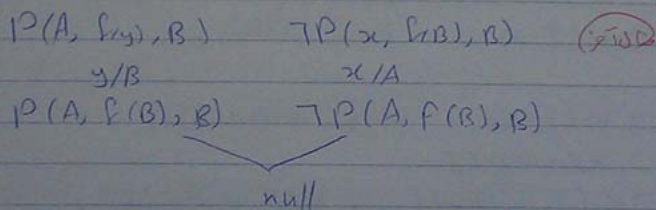 P(A, f(y), B) ¬P(x, f(B), B)
y/B x/A
P(A, f(B), B) ¬P(A, f(B), B)
null